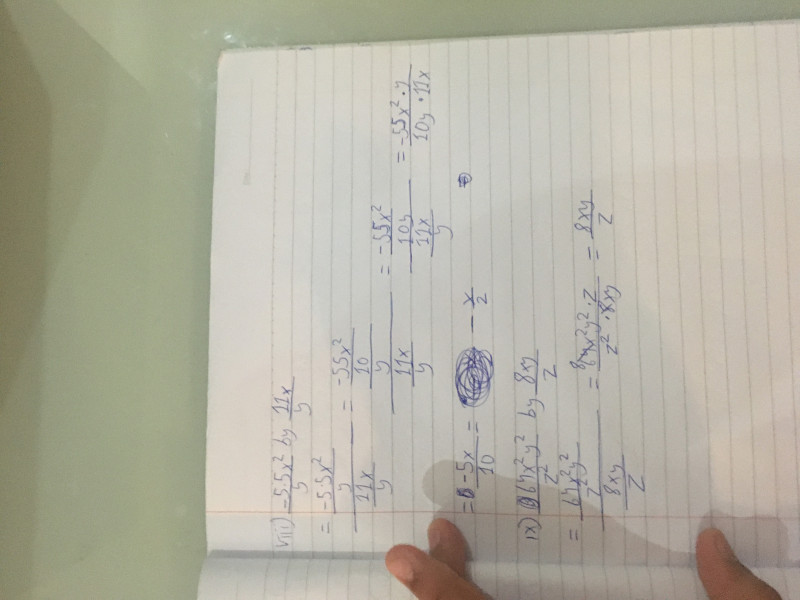 viii) -5.5x²/y by 11x/y
= (-5.5x²/y)/(11x/y) = ((-55x²/10)/y)/(11x/y) = (-55x²/10y)/(11x/y) = (-55x² · y)/(10y · 11x)
= -5x/10 = -x/2
ix) 64x²y²/z² by 8xy/z
= (64x²y²/z²)/(8xy/z) = (64x²y² · z)/(z² · 8xy) = 8xy/z